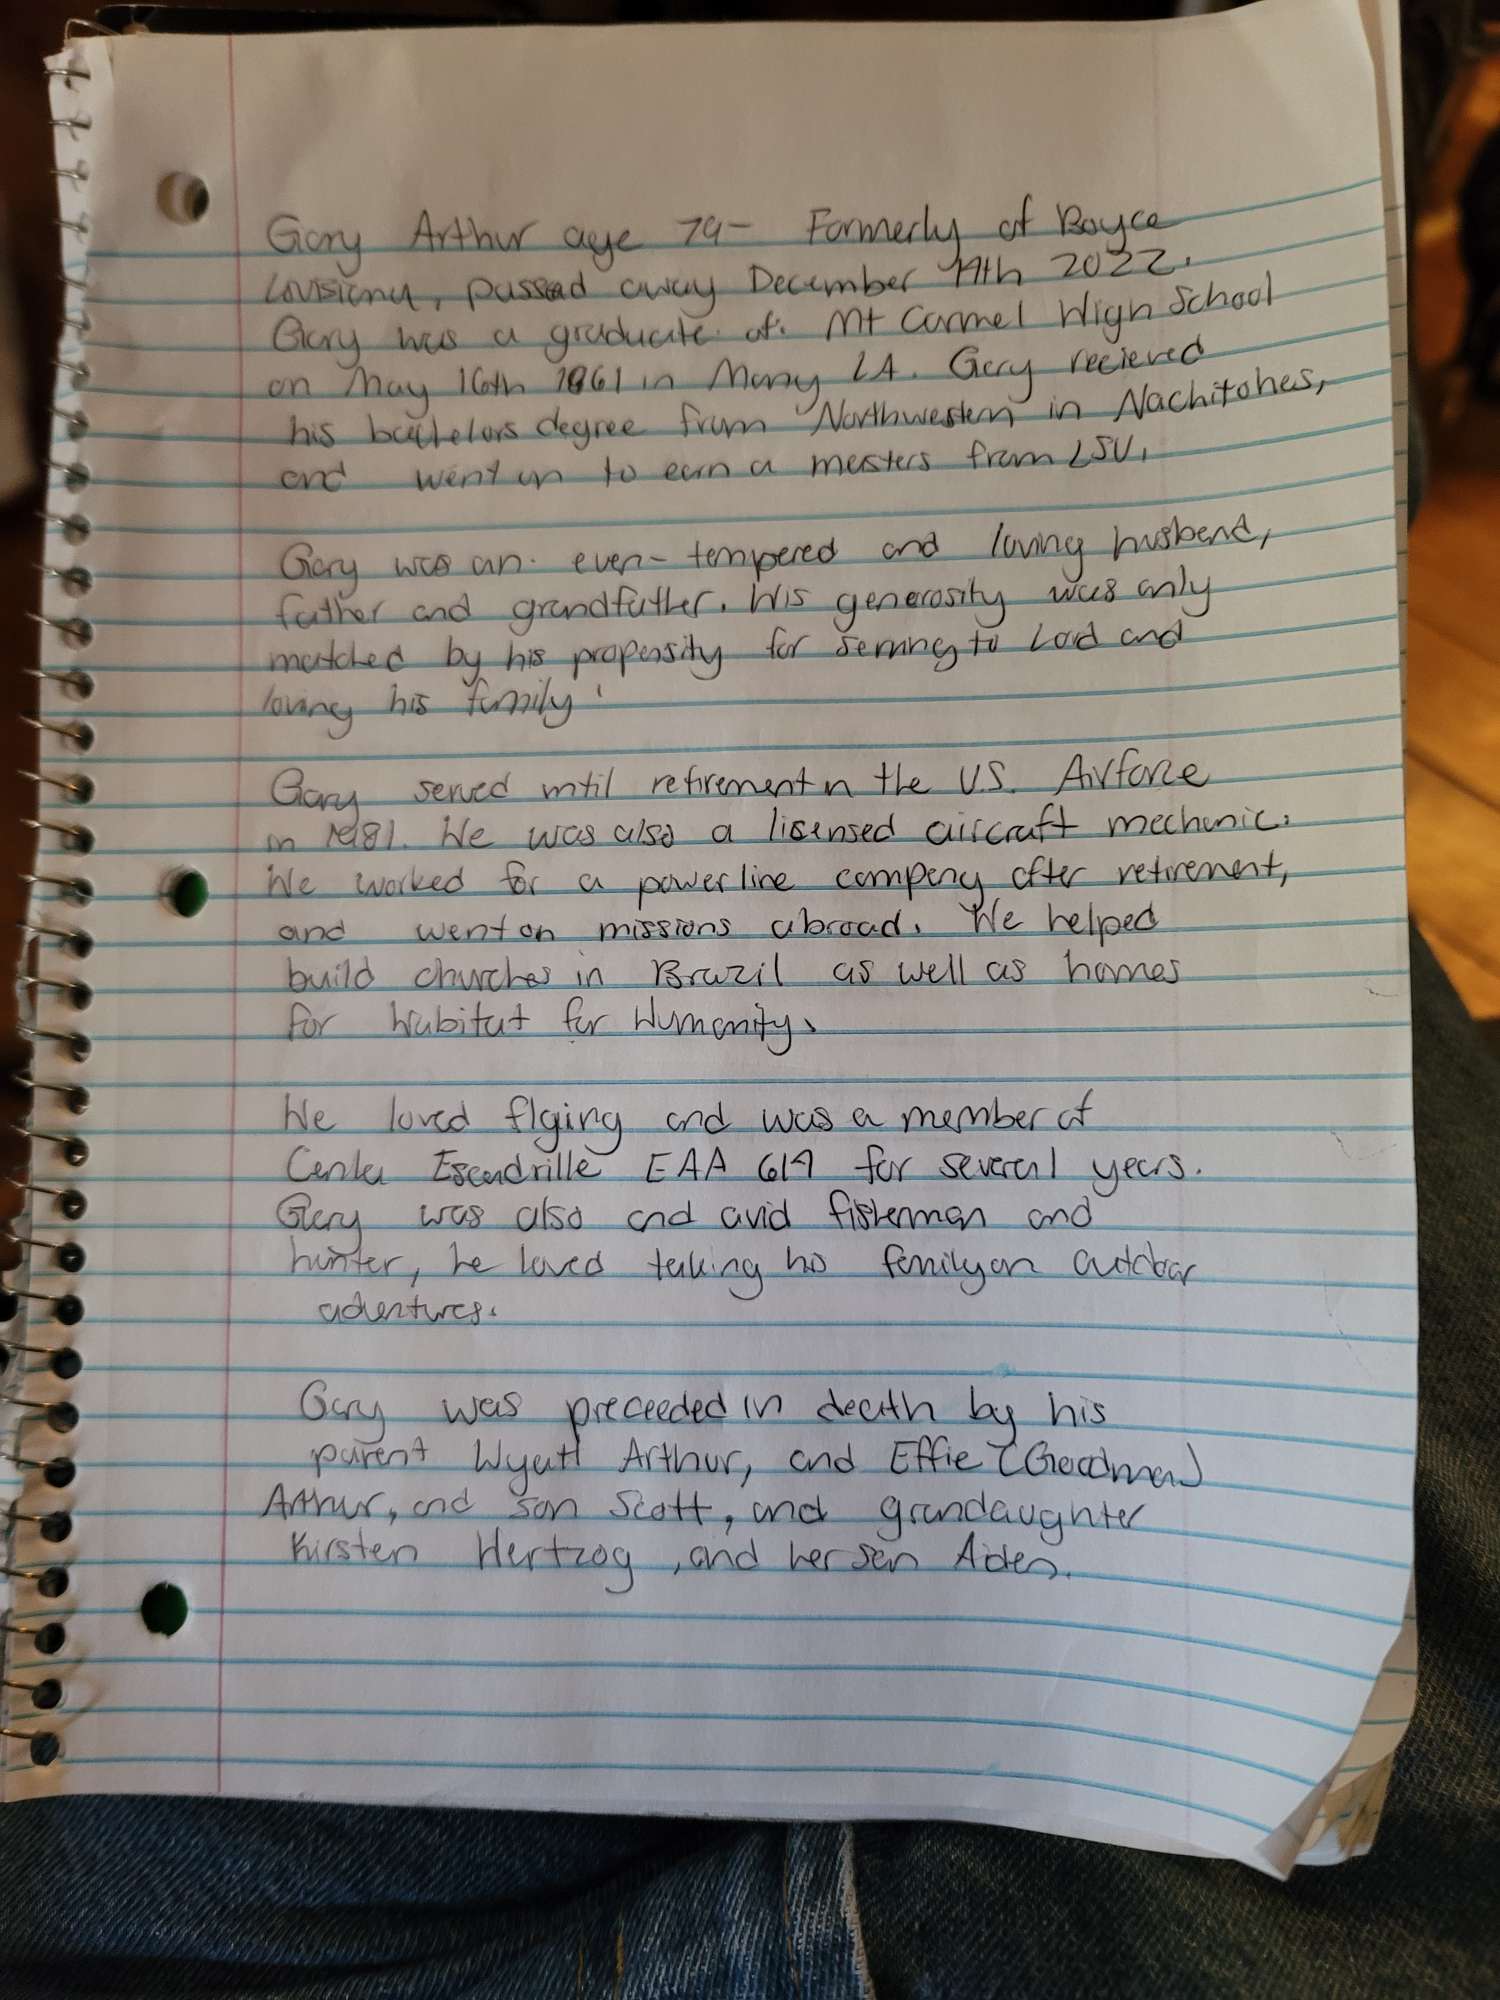 Gary Arthur age 79- Formerly of Boyce
Louisiana, passed away December 14th 2022.
Gary was a graduate of Mt Carmel High School
on May 16th 1961 in Many LA. Gary recieved
his bachelors degree from Northwestern in Nachitohes,
and went on to earn a masters from LSU.
Gary was an even-tempered and loving husband,
father and grandfather. His generosity was only
matched by his propensity for serving to Lord and
loving his family.
Gary served until retirement in the U.S. Airforce
in 1981. He was also a lisensed aircraft mechanic.
He worked for a powerline company after retirement,
and went on missions abroad. He helped
build churches in Brazil as well as homes
for Habitat for Humanity.
He loved flying and was a member of
Cenla Escadrille EAA 614 for several years.
Gary was also and avid fisherman and
hunter, he loved taking his family on outdoor
adventures.
Gary was preceeded in death by his
parent Wyatt Arthur, and Effie (Goodman)
Arthur, and son Scott, and grandaughter
Kirsten Hertzog, and her son Aiden.